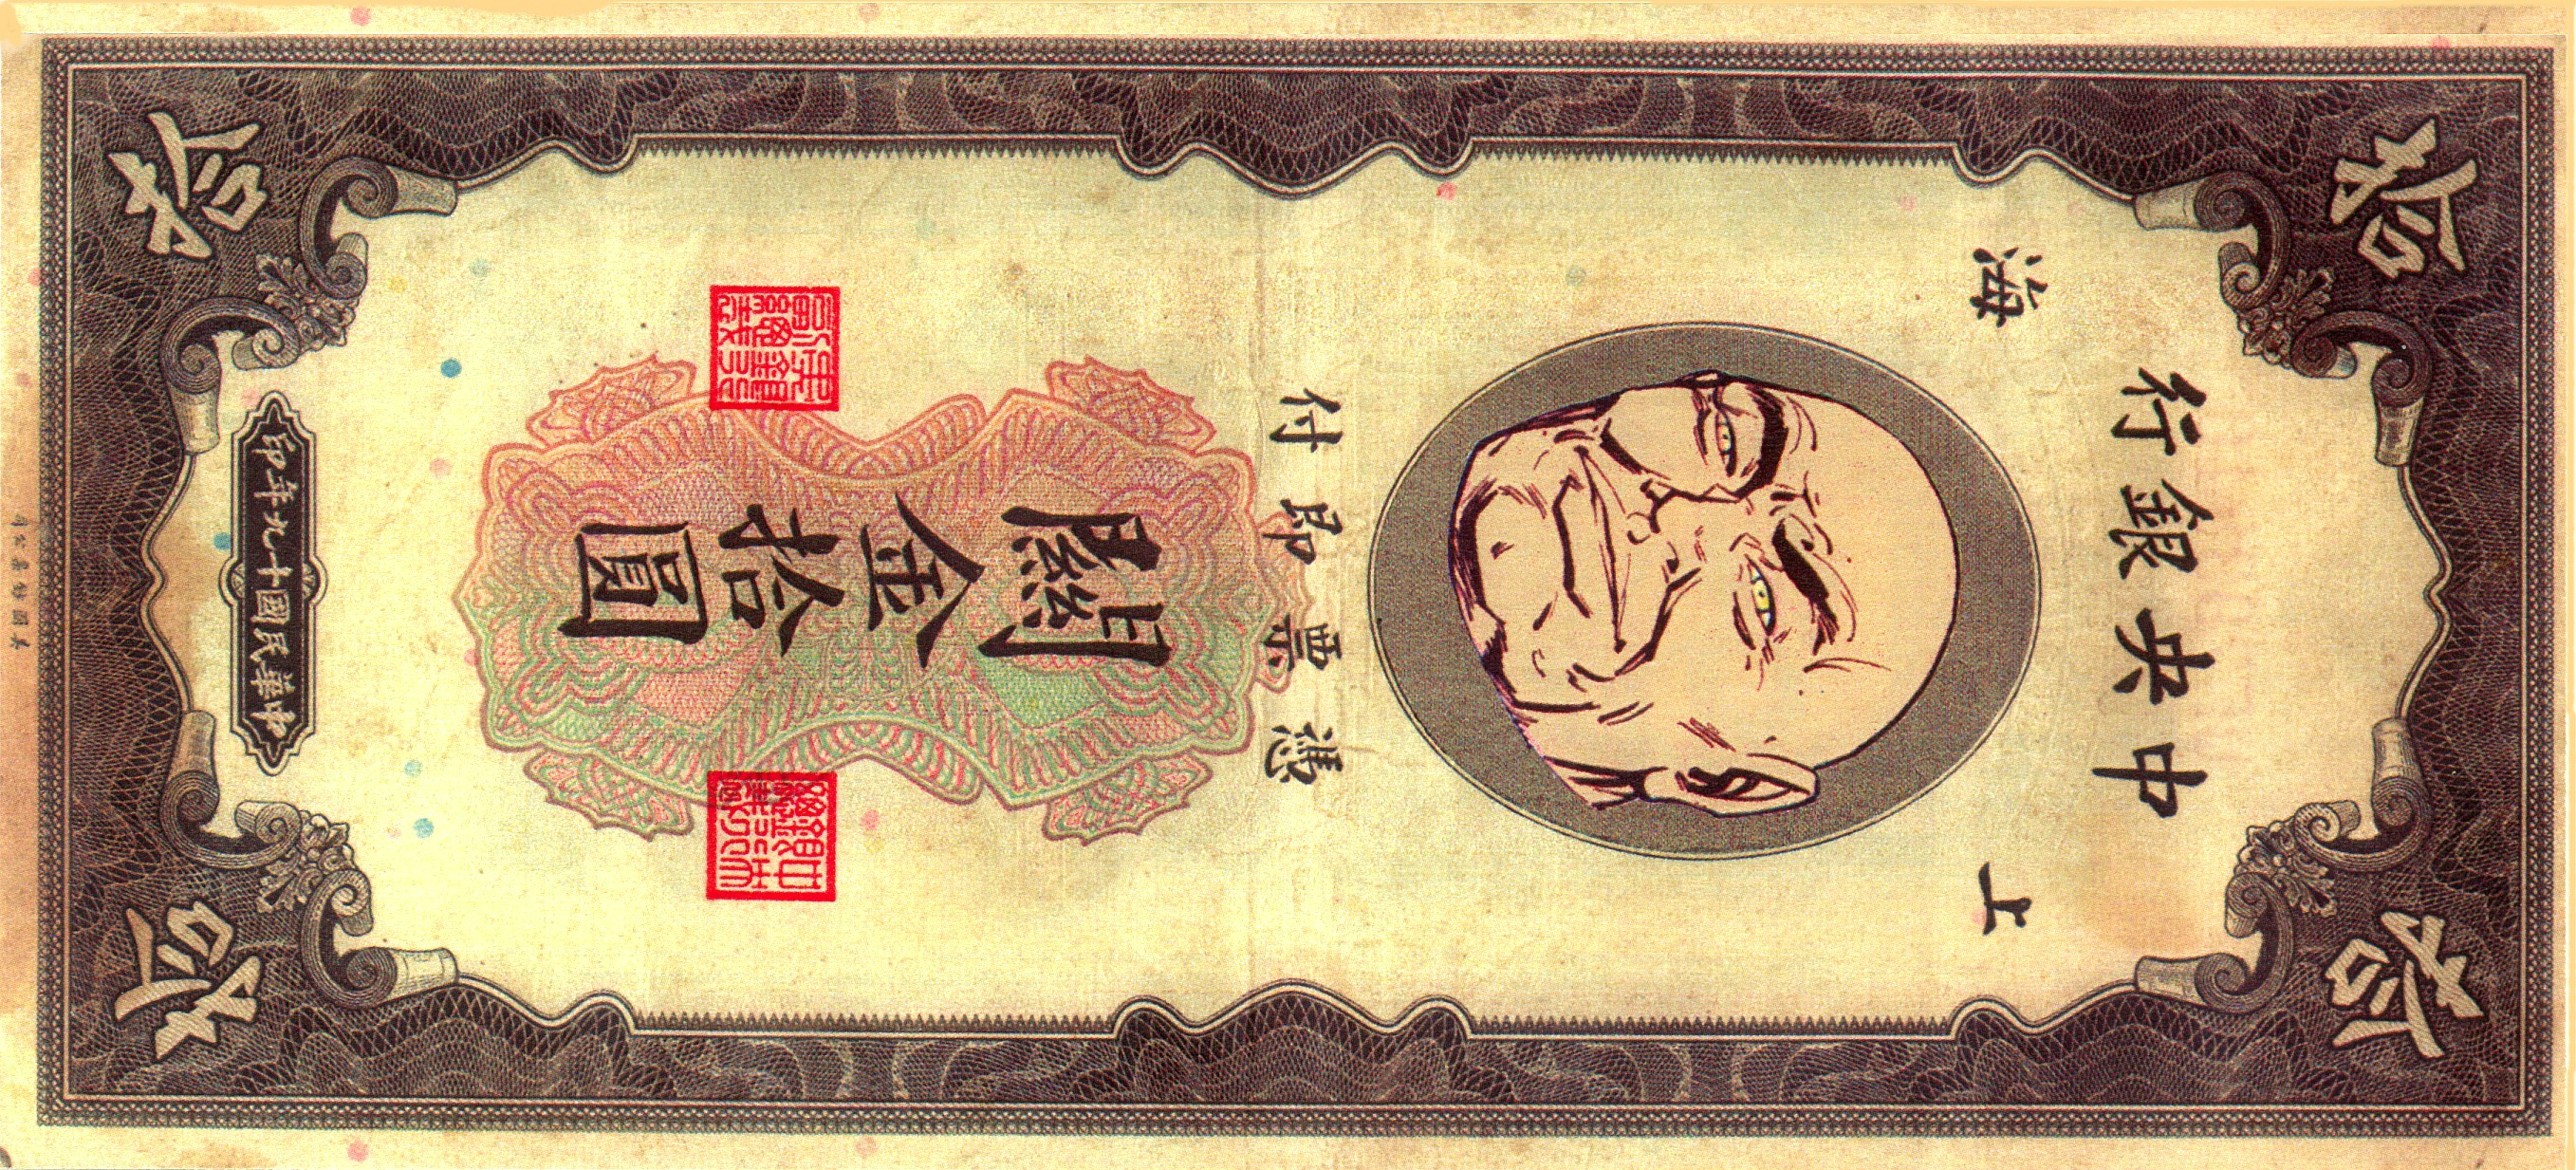 拾 拾
中央銀行
上海
憑票即付
關金拾圓
中華民國十九年印
拾 拾